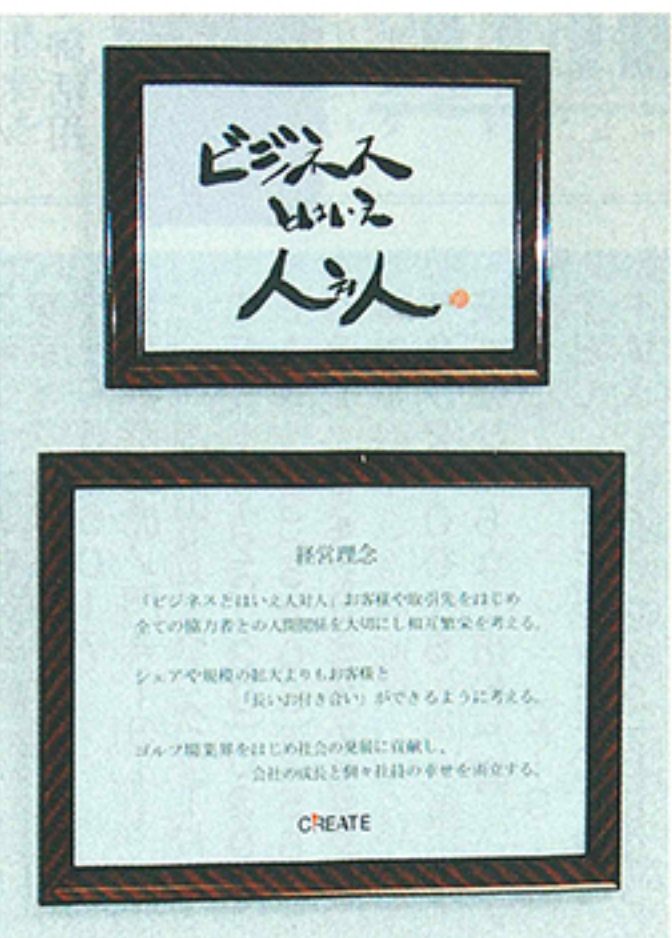 ビジネス
とはいえ
人対人
経営理念
「ビジネスとはいえ人対人」お客様や取引先をはじめ
全ての協力者との人間関係を大切にし相互繁栄を考える。
シェアや規模の拡大よりもお客様と
「長いお付き合い」ができるように考える。
ゴルフ場業界をはじめ社会の発展に貢献し、
会社の成長と個々社員の幸せを両立する。
CREATE